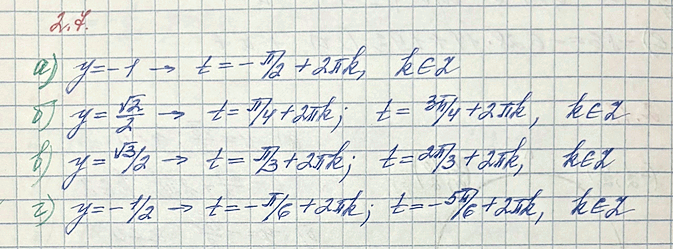 2.7.
а) y = -1 → t = -π/2 + 2πk, k∈Z
б) y = √2/2 → t = π/4 + 2πk; t = 3π/4 + 2πk, k∈Z
в) y = √3/2 → t = π/3 + 2πk; t = 2π/3 + 2πk, k∈Z
г) y = -1/2 → t = -π/6 + 2πk; t = -5π/6 + 2πk, k∈Z